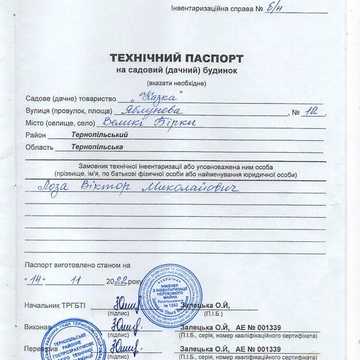 Інвентаризаційна справа № б/н
ТЕХНІЧНИЙ ПАСПОРТ
на садовий (дачний) будинок
(вказати необхідне)
Садове (дачне) товариство „Казка"
Вулиця (провулок, площа) Яблунова № 12
Місто (селище, село) Великі Бірки
Район Тернопільський
Область Тернопільська
Замовник технічної інвентаризації або уповноважена ним особа
(прізвище, ім'я, по батькові фізичної особи або найменування юридичної особи)
Лоза Віктор Миколайович
Паспорт виготовлено станом на
"14" 11 2022 року
Начальник ТРГБТІ Залецька О.Й,
(підпис) (П.І.Б.)
Виконав Залецька О.Й, АЕ № 001339
(підпис) (П.І.Б., серія, номер кваліфікаційного сертифіката)
Перевірив Залецька О.Й, АЕ № 001339
(підпис) (П.І.Б., серія, номер кваліфікаційного сертифіката)